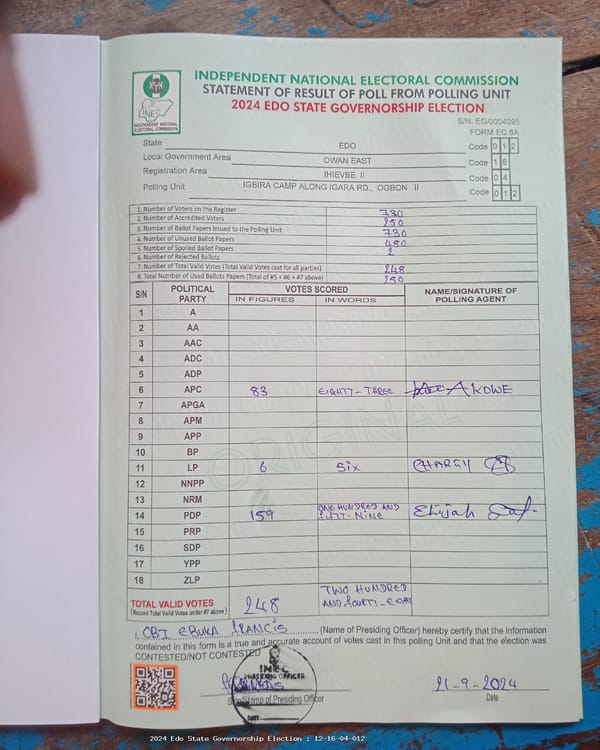 INDEPENDENT NATIONAL ELECTORAL COMMISSION
STATEMENT OF RESULT OF POLL FROM POLLING UNIT
2024 EDO STATE GOVERNORSHIP ELECTION
INEC
INDEPENDENT NATIONAL ELECTORAL COMMISSION
S/N: EG/0004095
FORM EC 8A
State EDO Code 0 1 2
Local Government Area OWAN EAST Code 1 6
Registration Area IHIEVBE II Code 0 4
Polling Unit IGBIRA CAMP ALONG IGARA RD., OGBON II Code 0 1 2
1. Number of Voters on the Register 730
2. Number of Accredited Voters 250
3. Number of Ballot Papers Issued to the Polling Unit 730
4. Number of Unused Ballot Papers 480
5. Number of Spoiled Ballot Papers 2
6. Number of Rejected Ballots
7. Number of Total Valid Votes (Total Valid Votes cast for all parties) 248
8. Total Number of Used Ballots Papers (Total of #5 + #6 + #7 above) 250
S/N POLITICAL PARTY VOTES SCORED NAME/SIGNATURE OF POLLING AGENT
IN FIGURES IN WORDS
1 A
2 AA
3 AAC
4 ADC
5 ADP
6 APC 83 EIGHTY-THREE AKOWE
7 APGA
8 APM
9 APP
10 BP
11 LP 6 SIX CHARGY
12 NNPP
13 NRM
14 PDP 159 ONE HUNDRED AND FIFTY-NINE Elijah
15 PRP
16 SDP
17 YPP
18 ZLP
ORIGINAL
TOTAL VALID VOTES 248 TWO HUNDRED AND FOURTY-EIGHT
(Record Total Valid Votes under #7 above)
I, OBI EBUKA FRANCIS (Name of Presiding Officer) hereby certify that the information
contained in this form is a true and accurate account of votes cast in this polling Unit and that the election was
CONTESTED/NOT CONTESTED
INEC
PRESIDING OFFICER
Sign/Stamp of Presiding Officer
DATE
21-9-2024
Date
2024 Edo State Governorship Election : 12-16-04-012